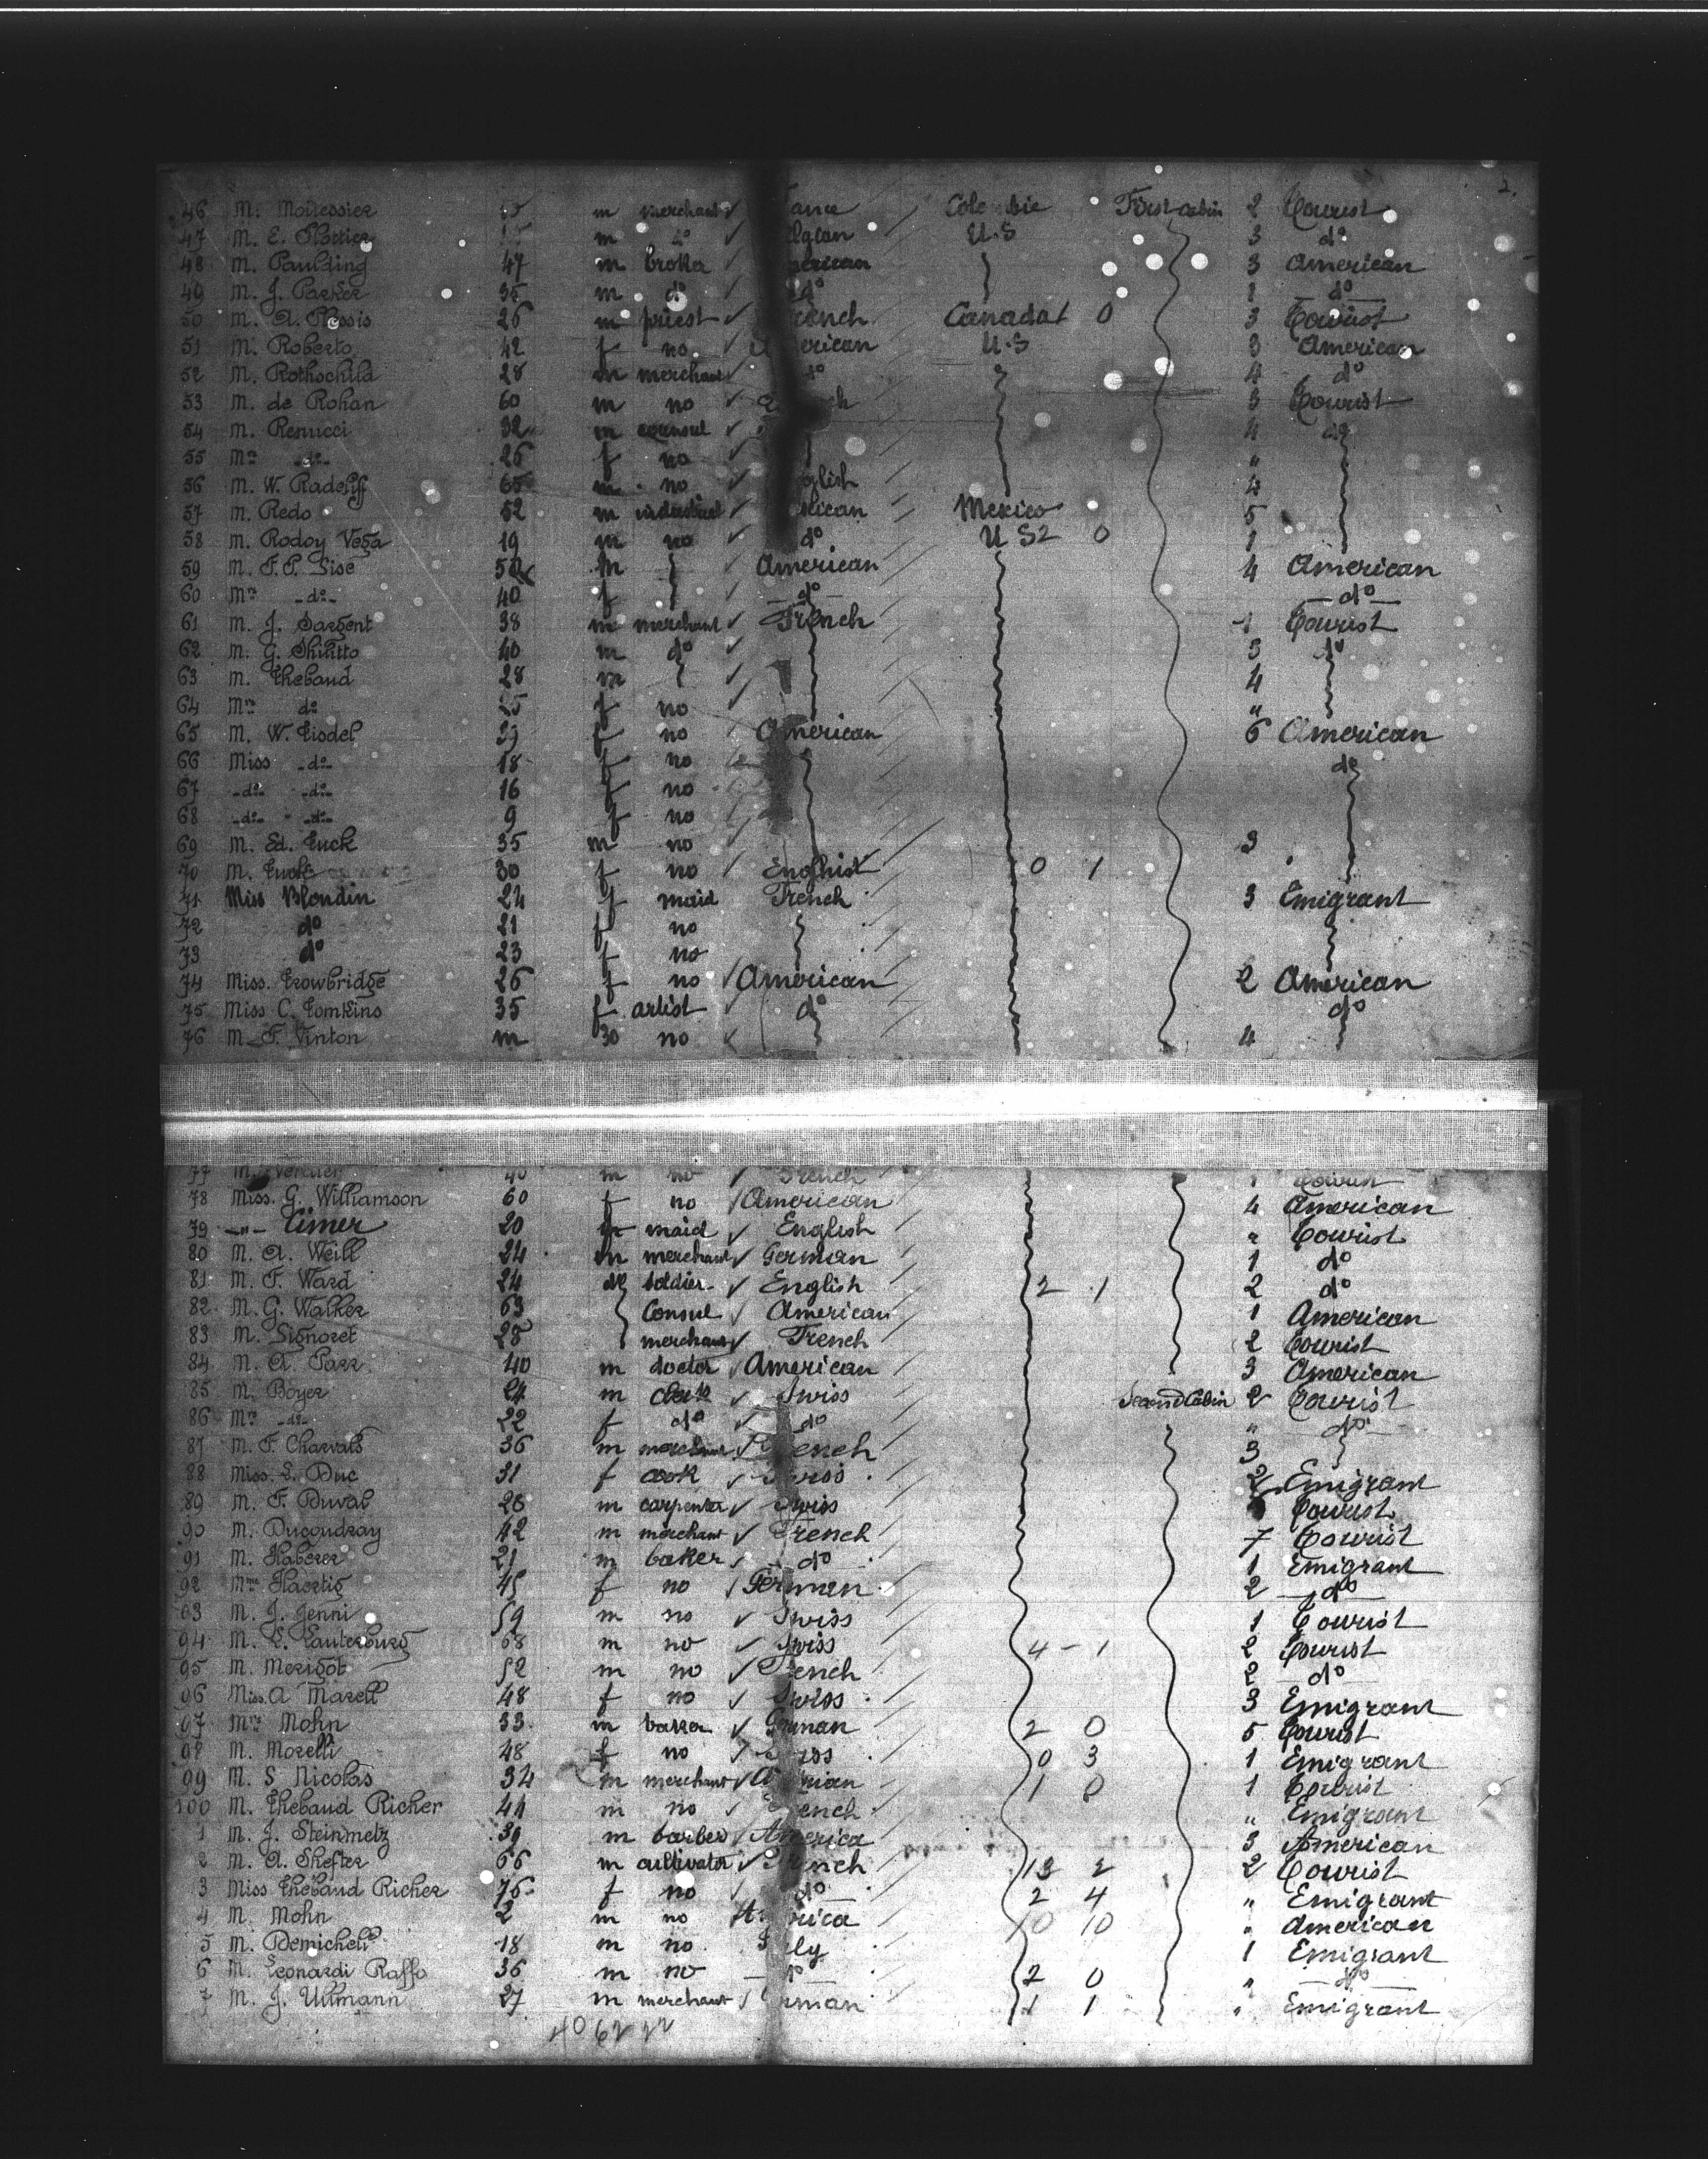 2.
46 M. Moitessier m merchant ance First cabin 2 Tourist
47 M. E. m do elgian U.S 3 do
48 M. Paulding 47 m broker 3 American
49 M. J. Parker 35 m do do 1 do
50 M. A. Plessis 26 m priest ench Canada 0 3 Tourist
51 M. Roberto 42 f no erican U.S 3 American
52 M. Rothschild 28 m merchant do 4 do
53 M. de Rohan 60 m no ch 3 Tourist
54 M. Renucci 32 m consul 4 do
55 Mme -do- 26 f no "
56 M. W. Radcliff 65 m no glish 4
57 M. Redo 52 m industriel xican Mexico 5
58 M. Rodoy Vega 19 m no do U S 2 0 1
59 M. F. P. Sise 50 m American 4 American
60 Mme -do- 40 f do do
61 M. J. Sargent 38 m merchant French 1 Tourist
62 M. G. Shintto 40 m do 3 do
63 M. Thebaud 28 m 4
64 Mme do 25 f no "
65 M. W. Tisdel 39 f no American 6 American
66 Miss -do- 18 f no do
67 -do- -do- 16 f no
68 -do- -do- 9 f no
69 M. Ed. Tuck 35 m no 3
70 M. Tuck 30 f no Englhist 0 1
71 Miss Blondin 24 f maid French 3 Emigrant
72 do 21 f no
73 do 23 f no
74 Miss. Trowbridge 26 f no American 2 American
75 Miss C. Tomkins 35 f artist do do
76 M. F. Vinton m 30 no 4
77 M. Verdier 40 m no French 1 Tourist
78 Miss. G. Williamson 60 f no American 4 American
79 -"- Cimer 20 maid English " Tourist
80 M. A. Weill 24 m merchant German 1 do
81 M. F. Ward 24 do soldier English 2 1 2 do
82 M. G. Walker 63 Consul American 1 American
83 M. Signoret 28 merchant French 2 Tourist
84 M. A. Parr 40 m doctor American 3 American
85 M. Boyer 24 m clerk Swiss Second Cabin 2 Tourist
86 Mme -do- 22 f do do " do
87 M. F. Charvals 36 m merchant French 3
88 Miss. S. Duc 31 f cook Swiss 2 Emigrant
89 M. F. Duval 26 m carpenter Swiss Tourist
90 M. Ducoudray 42 m merchant French 7 Tourist
91 M. Haberer 21 m baker do 1 Emigrant
92 Mme Haertig 45 f no German 2 do
93 M. J. Jenni 59 m no Swiss 1 Tourist
94 M. E. Lauterburg 68 m no Swiss 4 - 1 2 Tourist
95 M. Merigot 52 m no French 2 do
96 Miss. A Marell 48 f no Swiss 3 Emigrant
97 Mohn 33 m baker German 2 0 5 Tourist
98 M. Morelli 48 f no 0 3 1 Emigrant
99 M. S Nicolas 34 m merchant rian 1 0 1 Tourist
100 M. Thebaud Richer 44 m no ench " Emigrant
1 M. J. Steinmetz 39 m barber America 3 American
2 M. A. Shefter 66 m cultivator French 13 2 2 Tourist
3 Miss Thebaud Richer 76 f no do 2 4 " Emigrant
4 M. Mohn 2 m no rica 10 10 " American
5 M. Demicheli 18 m no ly 1 Emigrant
6 M. Leonardi Raffo 36 m no do 2 0 " do
7 M. J. Ullmann 27 m merchant rman 1 1 " Emigrant